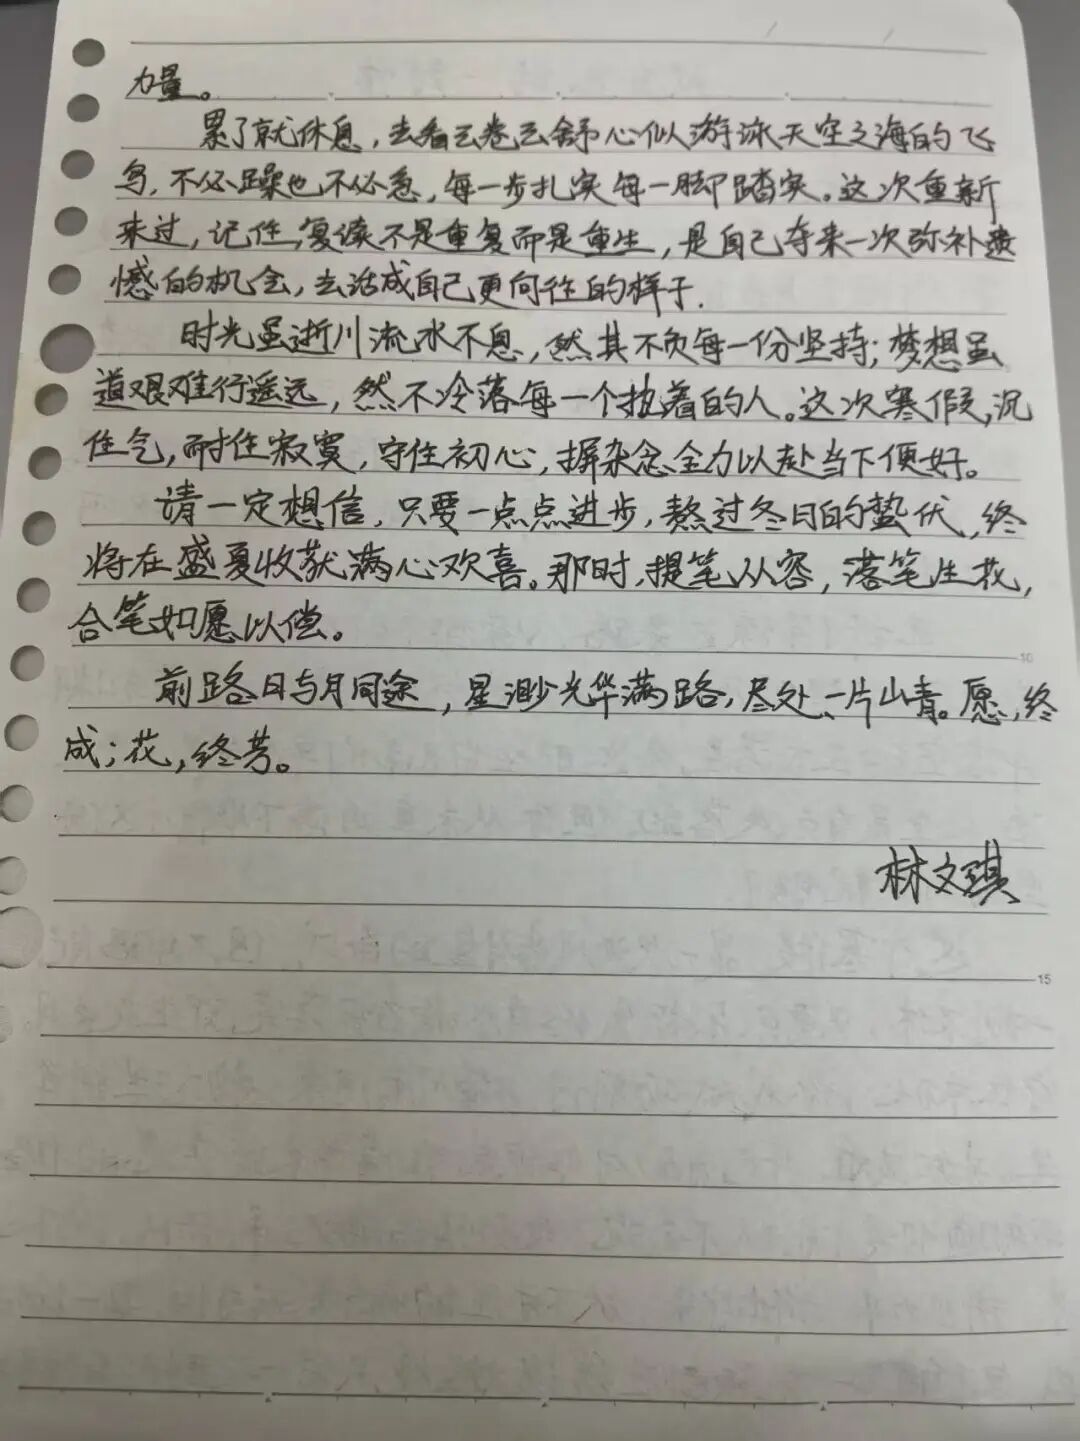 力量。
累了就休息，去看云卷云舒心似游泳天空之海的飞
鸟，不必躁也不必急，每一步扎实每一脚踏实。这次重新
来过，记住，复读不是重复而是重生，是自己夺来一次弥补遗
憾的机会，去活成自己更向往的样子.
时光虽逝川流水不息，然其不负每一份坚持；梦想虽
道艰难行遥远，然不冷落每一个执着的人。这次寒假，沉
住气，耐住寂寞，守住初心，摒杂念全力以赴当下便好。
请一定想信，只要一点点进步，熬过冬日的蛰伏，终
将在盛夏收获满心欢喜。那时，提笔从容，落笔生花，
合笔如愿以偿。
前路日与月同途，星渺光华满路，尽处、一片山青。愿，终
成；花，终芳。
林文琪
10
15